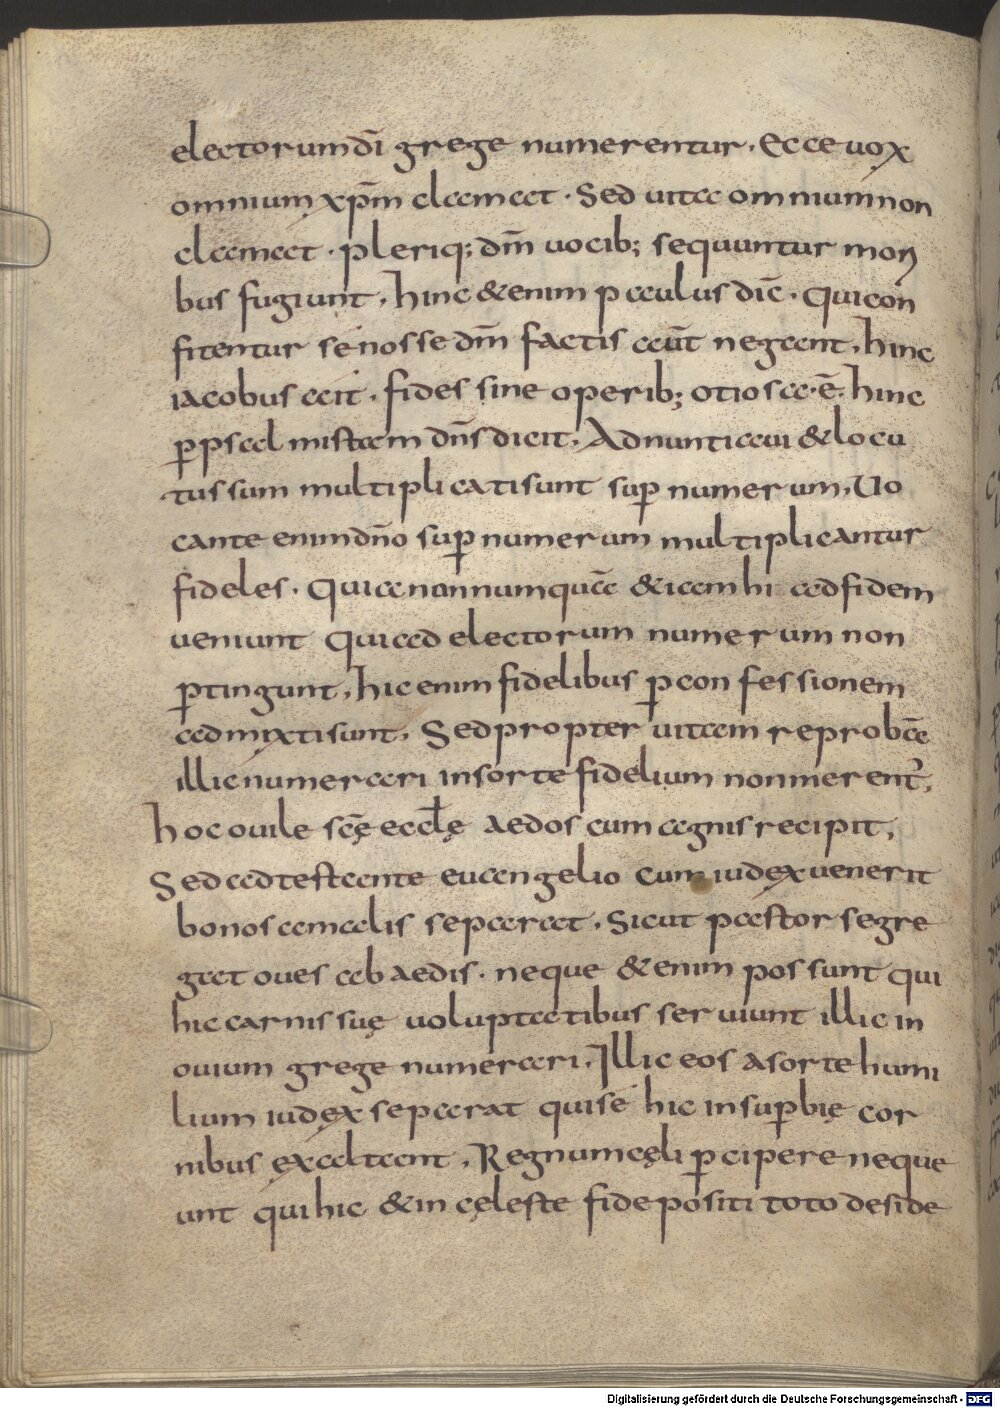 electorum dī grege numerentur. Ecce vox
omnium xp̄m clamat. Sed vita omnium non
clamat. pleriq; dm̄ vocib; sequuntur mori
bus fugiunt. hinc &enim paulus dic̄. Qui con
fitentur se nosse dm̄ factis aūt negant. hinc
iacobus ait. fides sine operib; otiosa.ē. hinc
p̱ psalmistam dn̄s dicit. Adnuntiavi &locu
tus sum multiplicati sunt sup̱ numerum. Vo
cante enim dn̄o sup̱ numerum multiplicantur
fideles. Quia nonnumquā &iam hi ad fidem
veniunt Qui ad electorum numerum non
p̱tingunt. hic enim fidelibus p̱ confessionem
admixti sunt. Sed propter vitam reprobā
illic numerari in sorte fidelium non merent᷑.
hoc ovile scę̄ eccl̄ę aedos cum agnis recipit.
Sed adtestante euangelio cum iudex venerit
bonos a malis separat. Sicut pastor segre
gat oves ab aedis. neque &enim possunt qui
hic carnis suę voluptatibus serviunt illic in
ovium grege numerari. Illic eos a sorte humi
lium iudex separat qui se hic in sup̱bię cor
nibus exaltant. Regnum cęli p̱cipere neque
unt qui hic &in cęleste fide positi toto deside
Digitalisierung gefördert durch die Deutsche Forschungsgemeinschaft - DFG